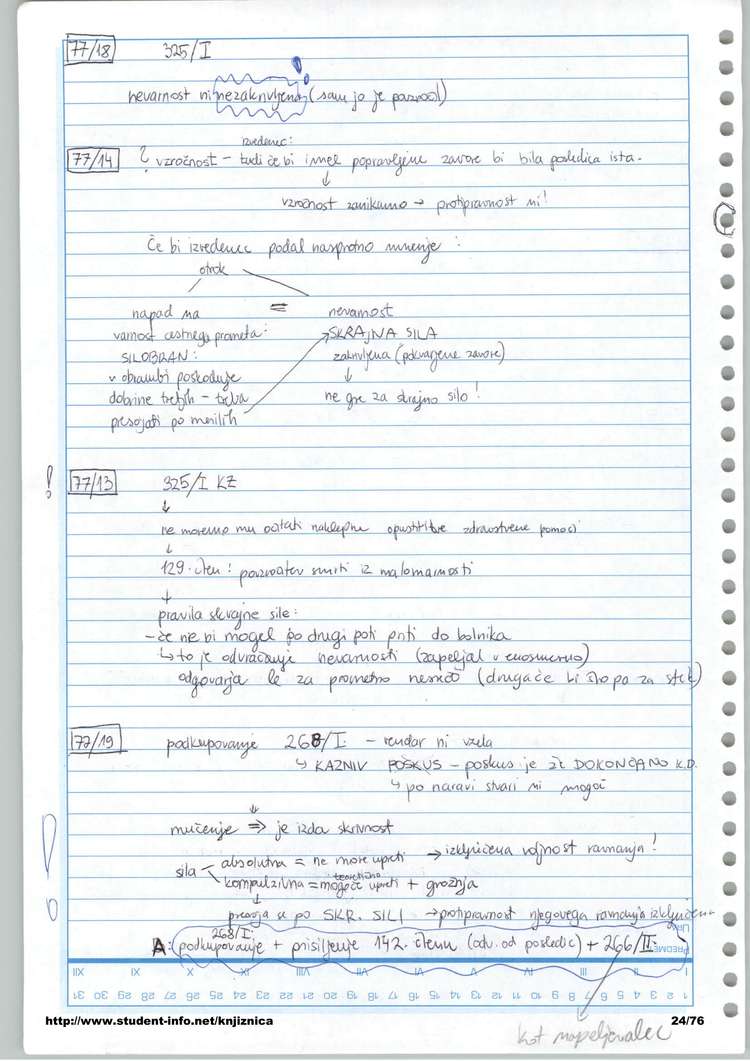 77/18 325/I
nevarnost ni nezakrivljena (sam jo je povzročil)
izvedenec:
77/14 ? vzročnost – tudi če bi imel popravljene zavore bi bila posledica ista.
↓
vzročnost zanikamo → protipravnost ni!
Če bi izvedenec podal nasprotno mnenje :
otrok
napad na = nevarnost
varnost cestnega prometa: SKRAJNA SILA
SILOBRAN: zakrivljena (pokvarjene zavore)
v obrambi poškoduje ↓
dobrine tretjih – treba ne gre za skrajno silo!
presojati po merilih
! 77/13 325/I KZ
↓
ne moremo mu očitati naklepne opustitve zdravstvene pomoči
↓
129. člen: povzročitev smrti iz malomarnosti
↓
pravila skrajne sile:
– če ne bi mogel po drugi poti priti do bolnika
↳ to je odvračanje nevarnosti (zapeljal v enosmerno)
odgovarja le za prometno nesrečo (drugače bi šlo pa za stek)
77/19 podkupovanje 268/I – vendar ni vzela
↳ KAZNIV POSKUS – poskus je že DOKONČANO K.D.
↳ po naravi stvari ni mogoč
↓
! mučenje ⇒ je izda skrivnost
sila absolutna = ne more upreti → izključena voljnost ravnanja!
teoretično
kompulzivna = mogoče upreti + grožnja
↓
presoja se po SKR. SILI → protipravnost njegovega ravnanja izključena
268/I
A: (podkupovanje + prisiljenje 142. členu (odv. od posledic) + 266/II
PREDMET
I II III IV V VI VII VIII IX X XI XII
1 2 3 4 5 6 7 8 9 10 11 12 13 14 15 16 17 18 19 20 21 22 23 24 25 26 27 28 29 30 31
http://www.student-info.net/knjiznica 24/76
kot napeljevalec